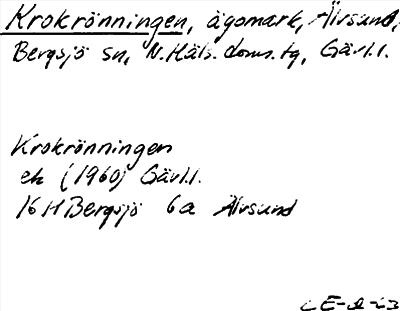 Krokrönningen, ägomark, Älvsund,
Bergsjö sn, N. Häls. doms. tg, Gävl.l.
Krokrönningen
ek (1960) Gävl.l.
16H Bergsjö 6a Älvsund